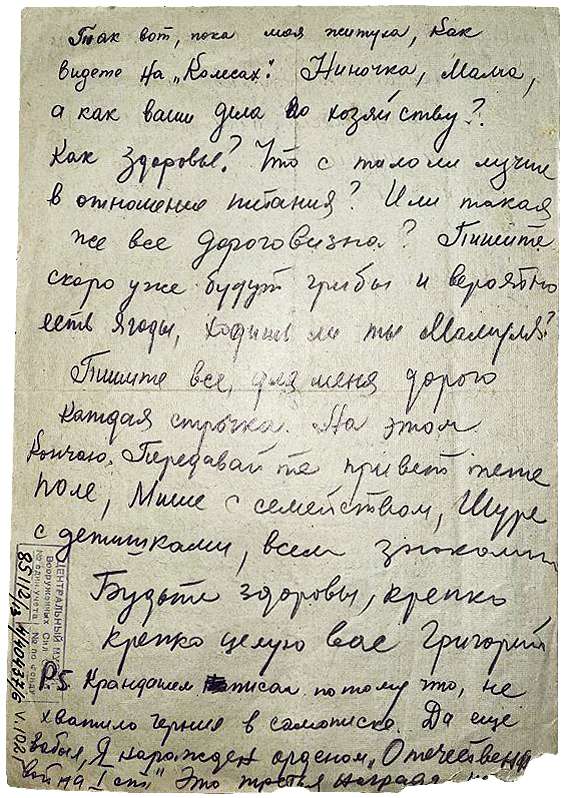 Так вот, пока моя житуха, как
видете на „Колесах". Ниночка, Мама,
а как ваши дела по хозяйству?
Как здоровье? Что стало ли лучше
в отношение питания? Или такая
же все дороговизна? Пишите
скоро уже будут грибы и вероятно
есть ягоды, ходишь ли ты Мамуля?
Пишите все, для меня дорого
каждая строчка. На этом
кончаю. Передавайте привет тете
Поле, Мише с семейством, Шуре
с детишками, всем знакомым
Будьте здоровы, крепко
крепко целую вас Григорий
PS. Крандашем писал потому что, не
хватило чернил в самописке. Да еще
забыл, Я награжден орденом „Отечественная
война I ст" Это третья награда
ЦЕНТРАЛЬНЫЙ МУЗЕЙ
Вооруженных Сил
№ един. учета № по
4/10437/6 V-102